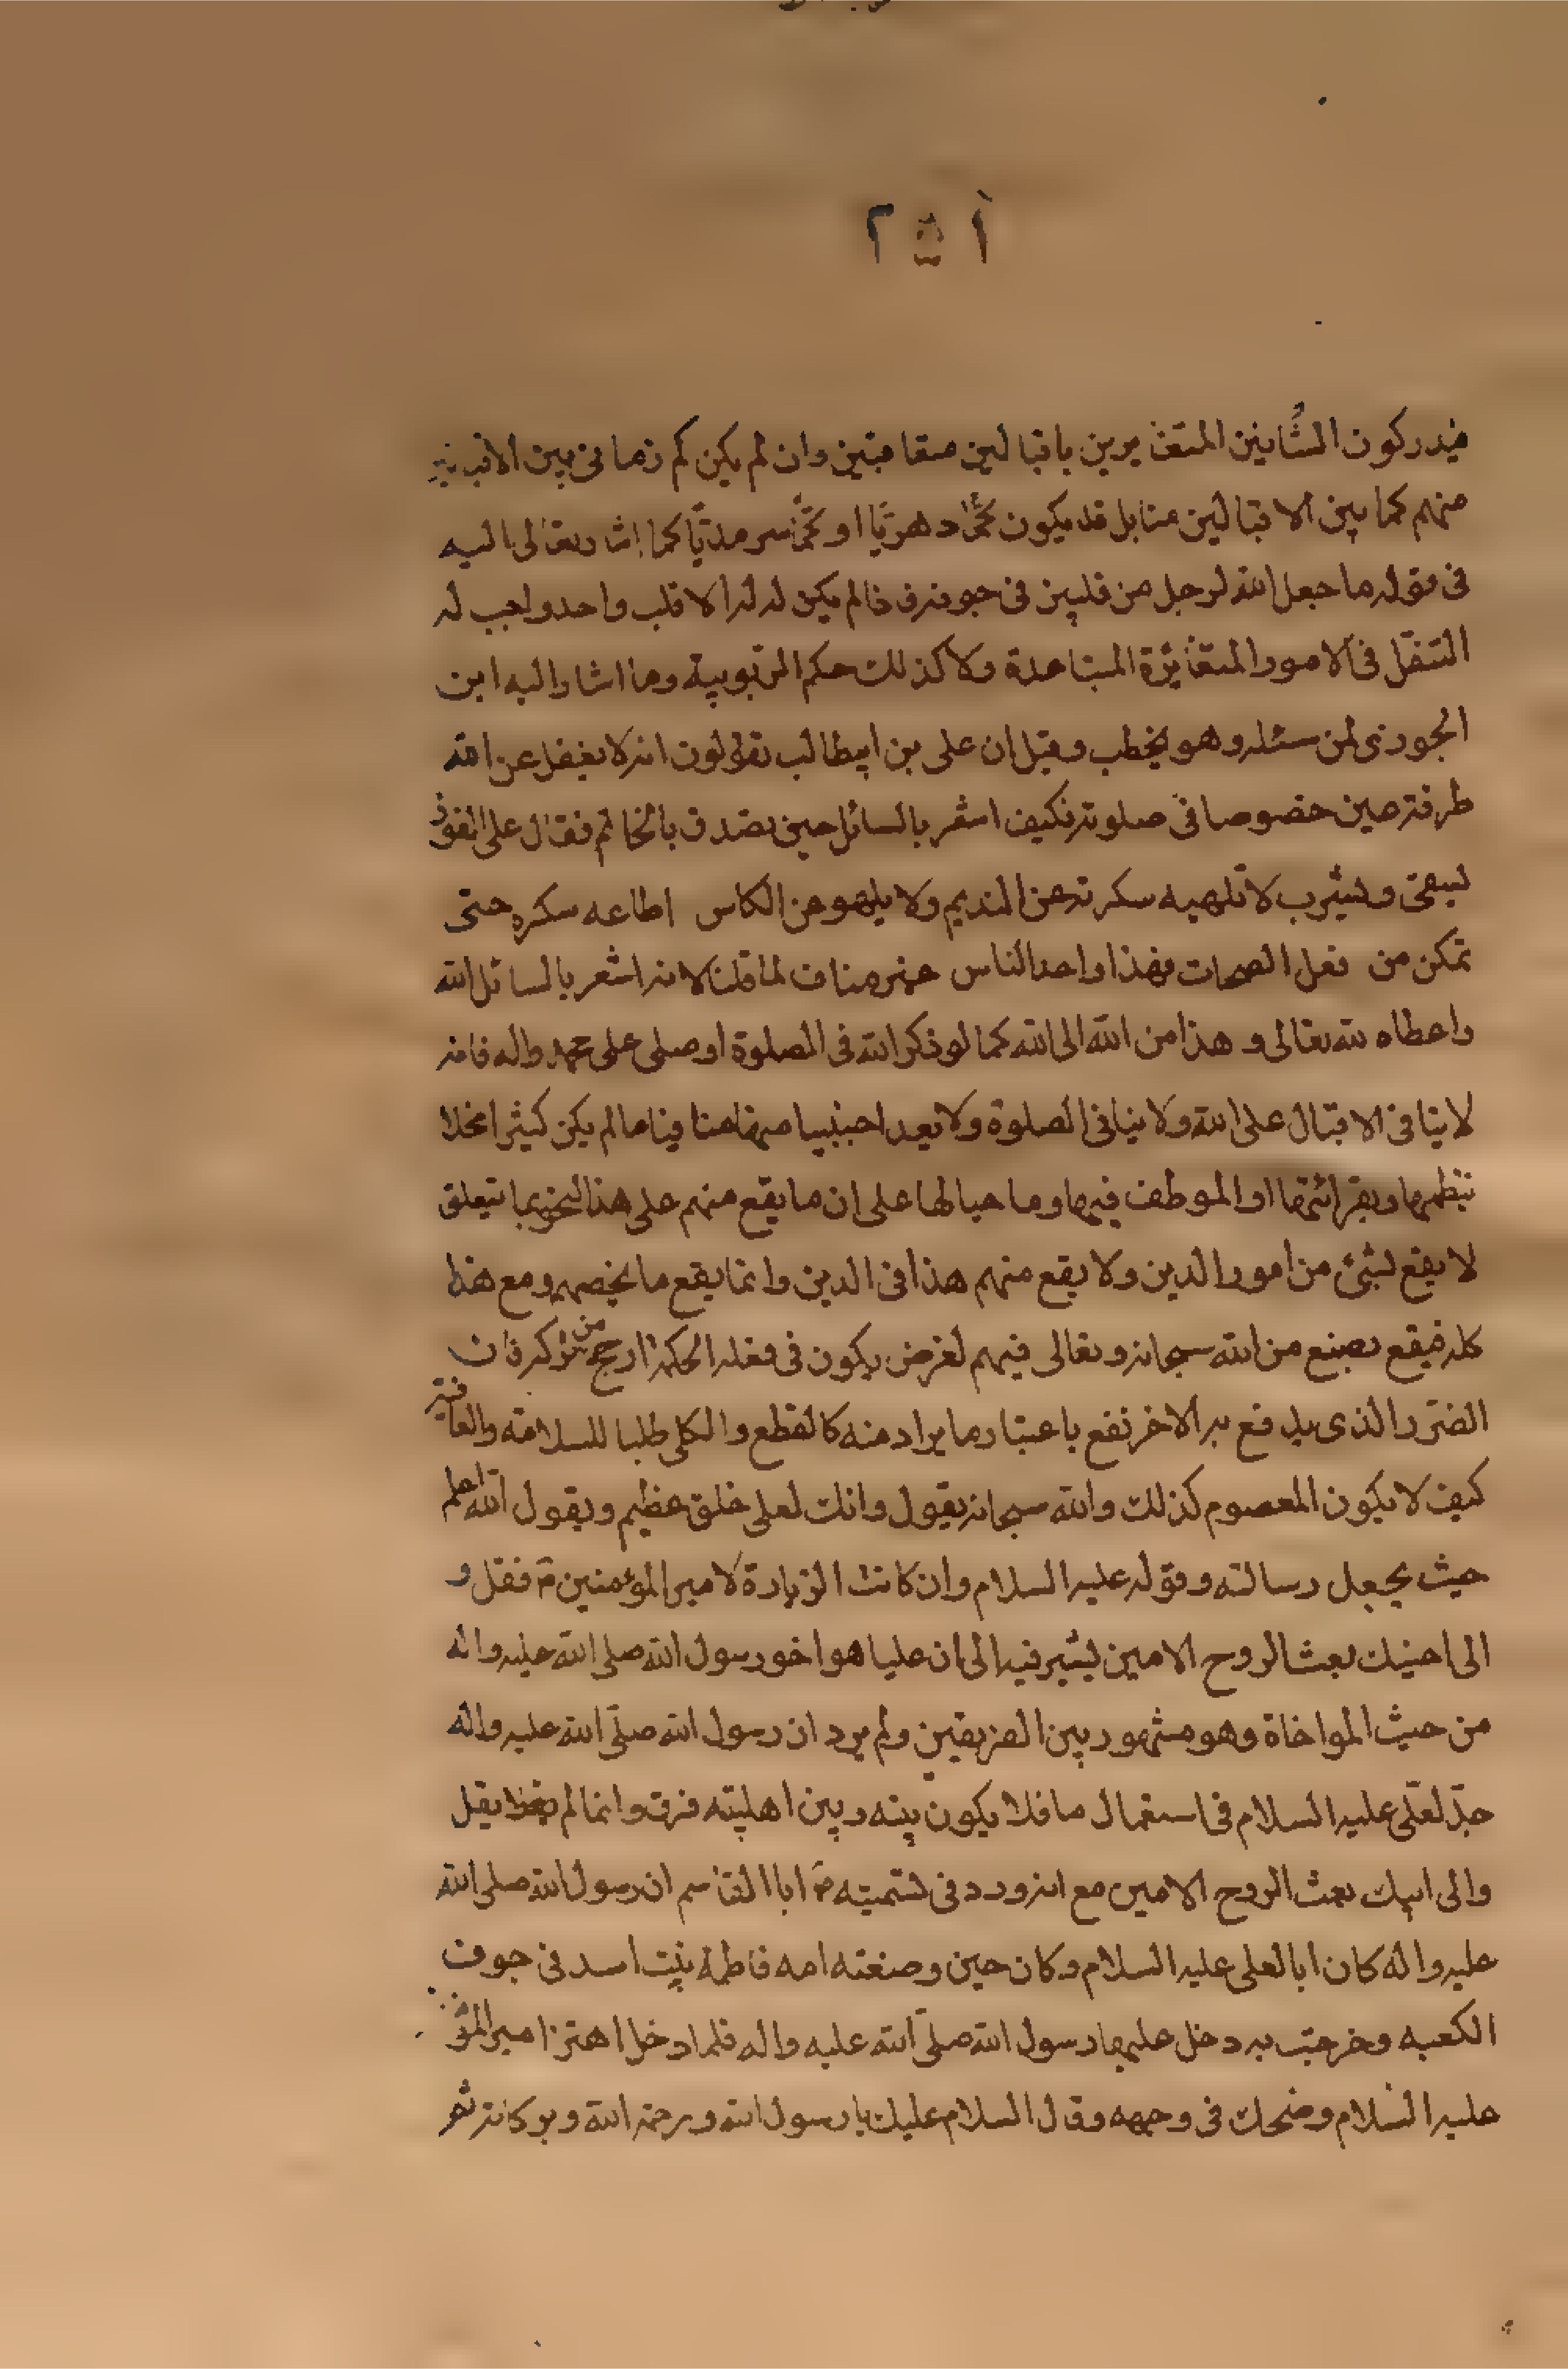 فيدركون الشأنين المتغايرين باقبالين متعاقبين وان لم يكن كم زمانى بين الاقبالين
منهم كما بين الاقبالين منا بل قد يكون كمّا دهريّا او كمّا سرمديّا كما اشار تعالى اليه
فى قوله ما جعل الله لرجل من قلبين فى جوفه فالم يكن له الا قلب واحد واجب له
التنقّل فى الامور المتغايرة المتباعدة ولا كذلك حكم الربّوبية وما اشار اليه ابن
الجوزى لمن سئله وهو يخطب وقيل ان على بن ابيطالب تقولون انه لا يغفل عن الله
طرفة عين خصوصا فى صلوته فكيف اشعر بالسائل حين تصدق بالخاتم فقال على الفور
يسقى ويشرب لا تلهيه سكرته عن النديم ولا يلهو عن الكاس اطاعه سكره حتى
تمكن من فعل الصحات فهذا واحد الناس غير مناف لما قلنا لانه اشعر بالسائل لله
واعطاه لله تعالى وهذا من الله الى الله كما لو ذكر الله فى الصلوة او صلى على محمد واله فانه
لا ينافى الاقبال على الله ولا ينافى الصلوة ولا يعد اجنبيا منها منا فينا ما لم يكن كثيرا مخلا
بنظمها وبقرائتها او الموظف فيها وما حيالها على ان ما يقع منهم على هذا النحو بما تتعلق
لا يقع لشئ من امور الدين ولا يقع منهم هذا فى الدين وانما يقع ما يخصهم ومع هذا
كله فيقع بصنع من الله سبحانه وتعالى فيهم لغرض يكون فى فعله الحكمة ارجح من تركه فان
الضرر الذى يدفع به الاخر نفع باعتبار ما يراد منه كالقطع والكى طلبا للسلامة والعافية
كيف لا يكون المعصوم كذلك والله سبحانه يقول وانك لعلى خلق عظيم ويقول الله اعلم
حيث يجعل رسالته وقوله عليه السلام وان كانت الزيارة لامير المؤمنين ع فقل و
الى اخيك بعث الروح الامين يشير فيه الى ان عليا هو اخو رسول الله صلى الله عليه واله
من حيث المواخاة وهو مشهور بين الفريقين ولم يرد ان رسول الله صلّى الله عليه واله
جدّ لعلّى عليه السلام فى استعمال ما فلا يكون بينه وبين اهلبيته فرق وانما لم يقل
والى ابيك بعث الروح الامين مع انه ورد فى تسميته ص ابا القاسم ان رسول الله صلى الله
عليه واله كان ابا لعلى عليه السلام وكان حين وضعته امه فاطمة بنت اسد فى جوف
الكعبه وخرجت به دخل عليها رسول الله صلّى الله عليه واله فلما دخل اهتز امير المؤمنين
عليه السلام وضحك فى وجهه وقال السلام عليك يا رسول الله ورحمة الله وبركاته ثم